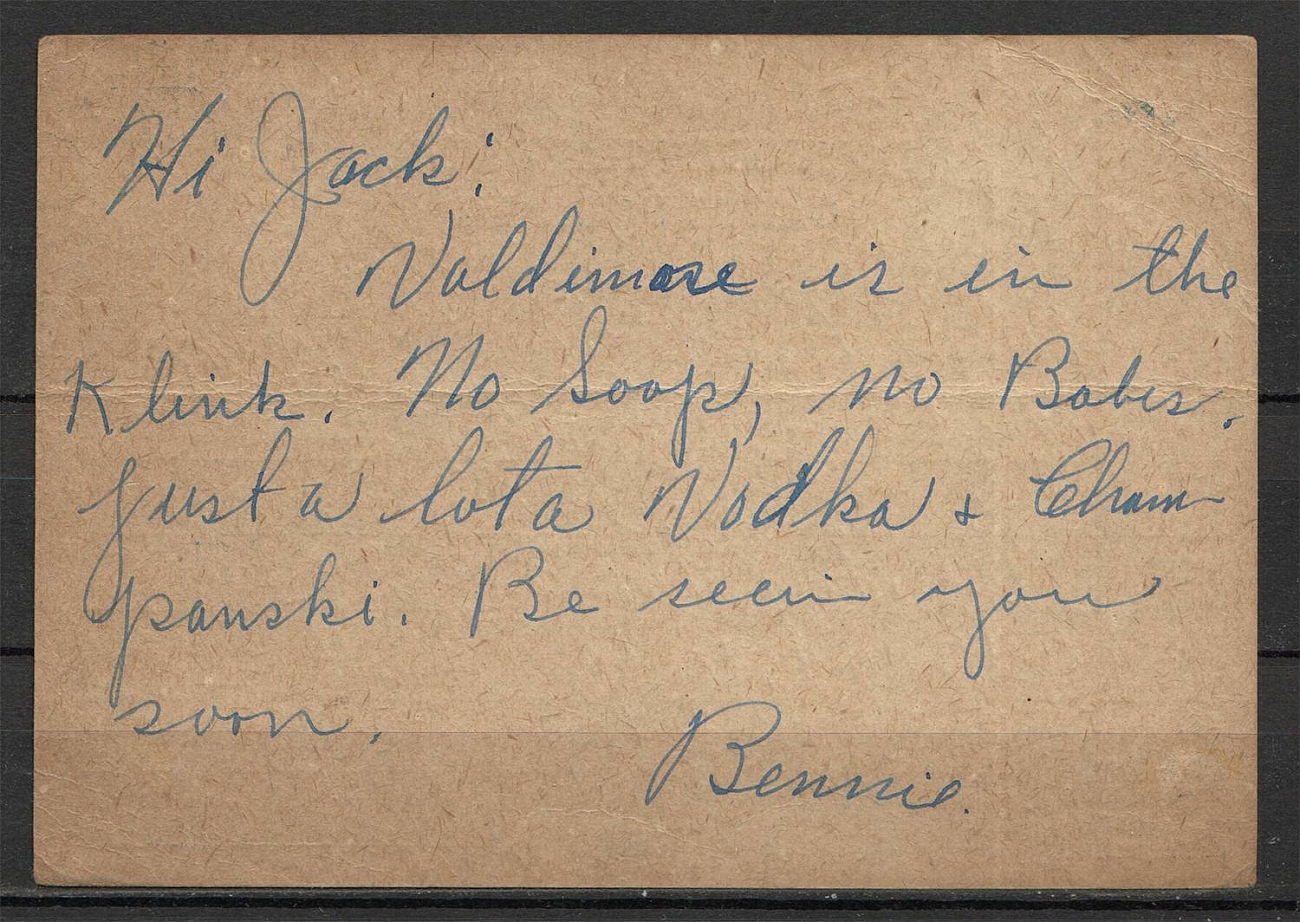 Hi Jack:
Valdimare is in the
Klink. No Soap, no Babes.
Just a lota Vodka & Cham-
panski. Be seein you
soon.
Bennie.